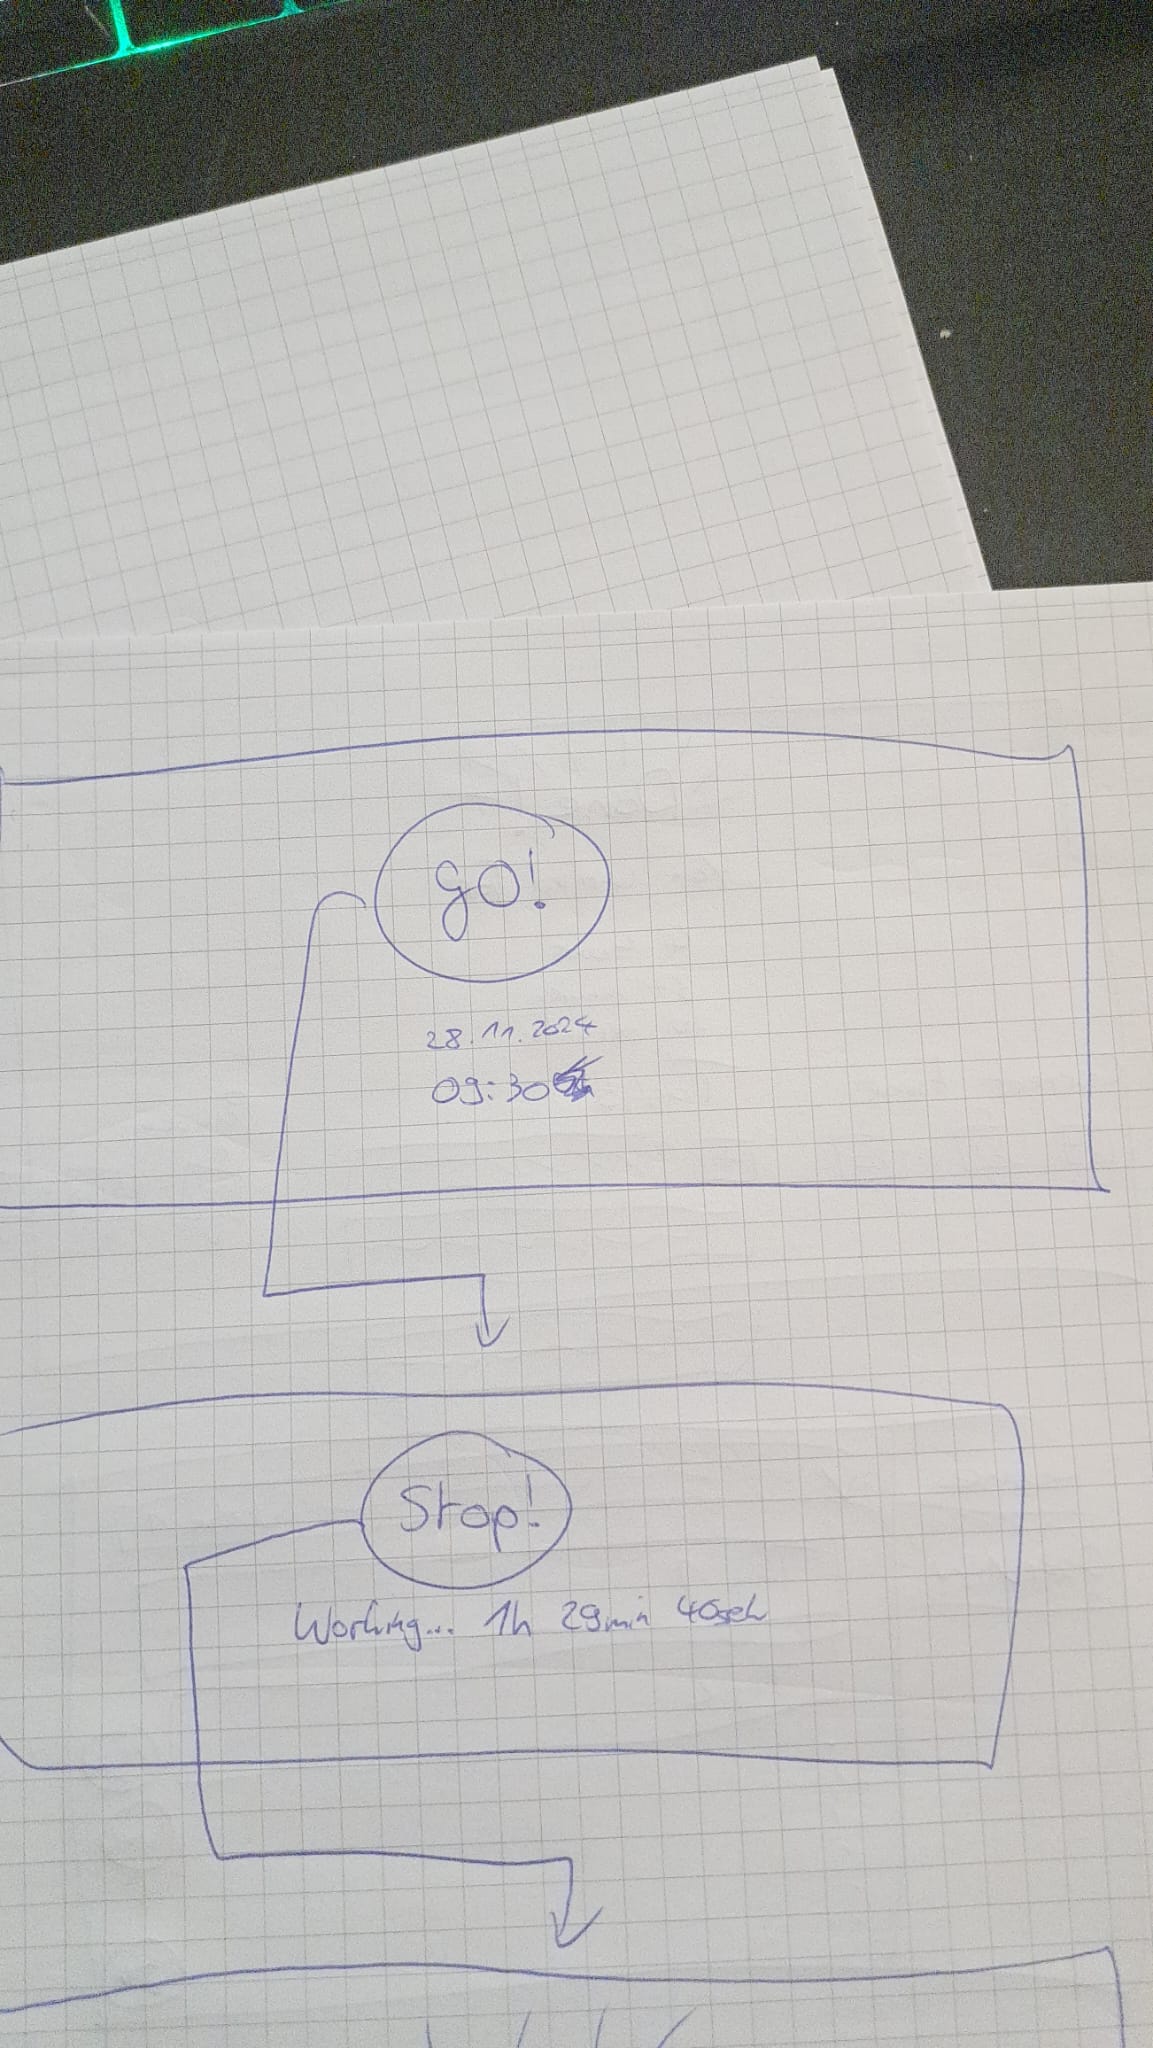 go!
28.11.2024
09:30
Stop!
Working... 1h 29min 40sek